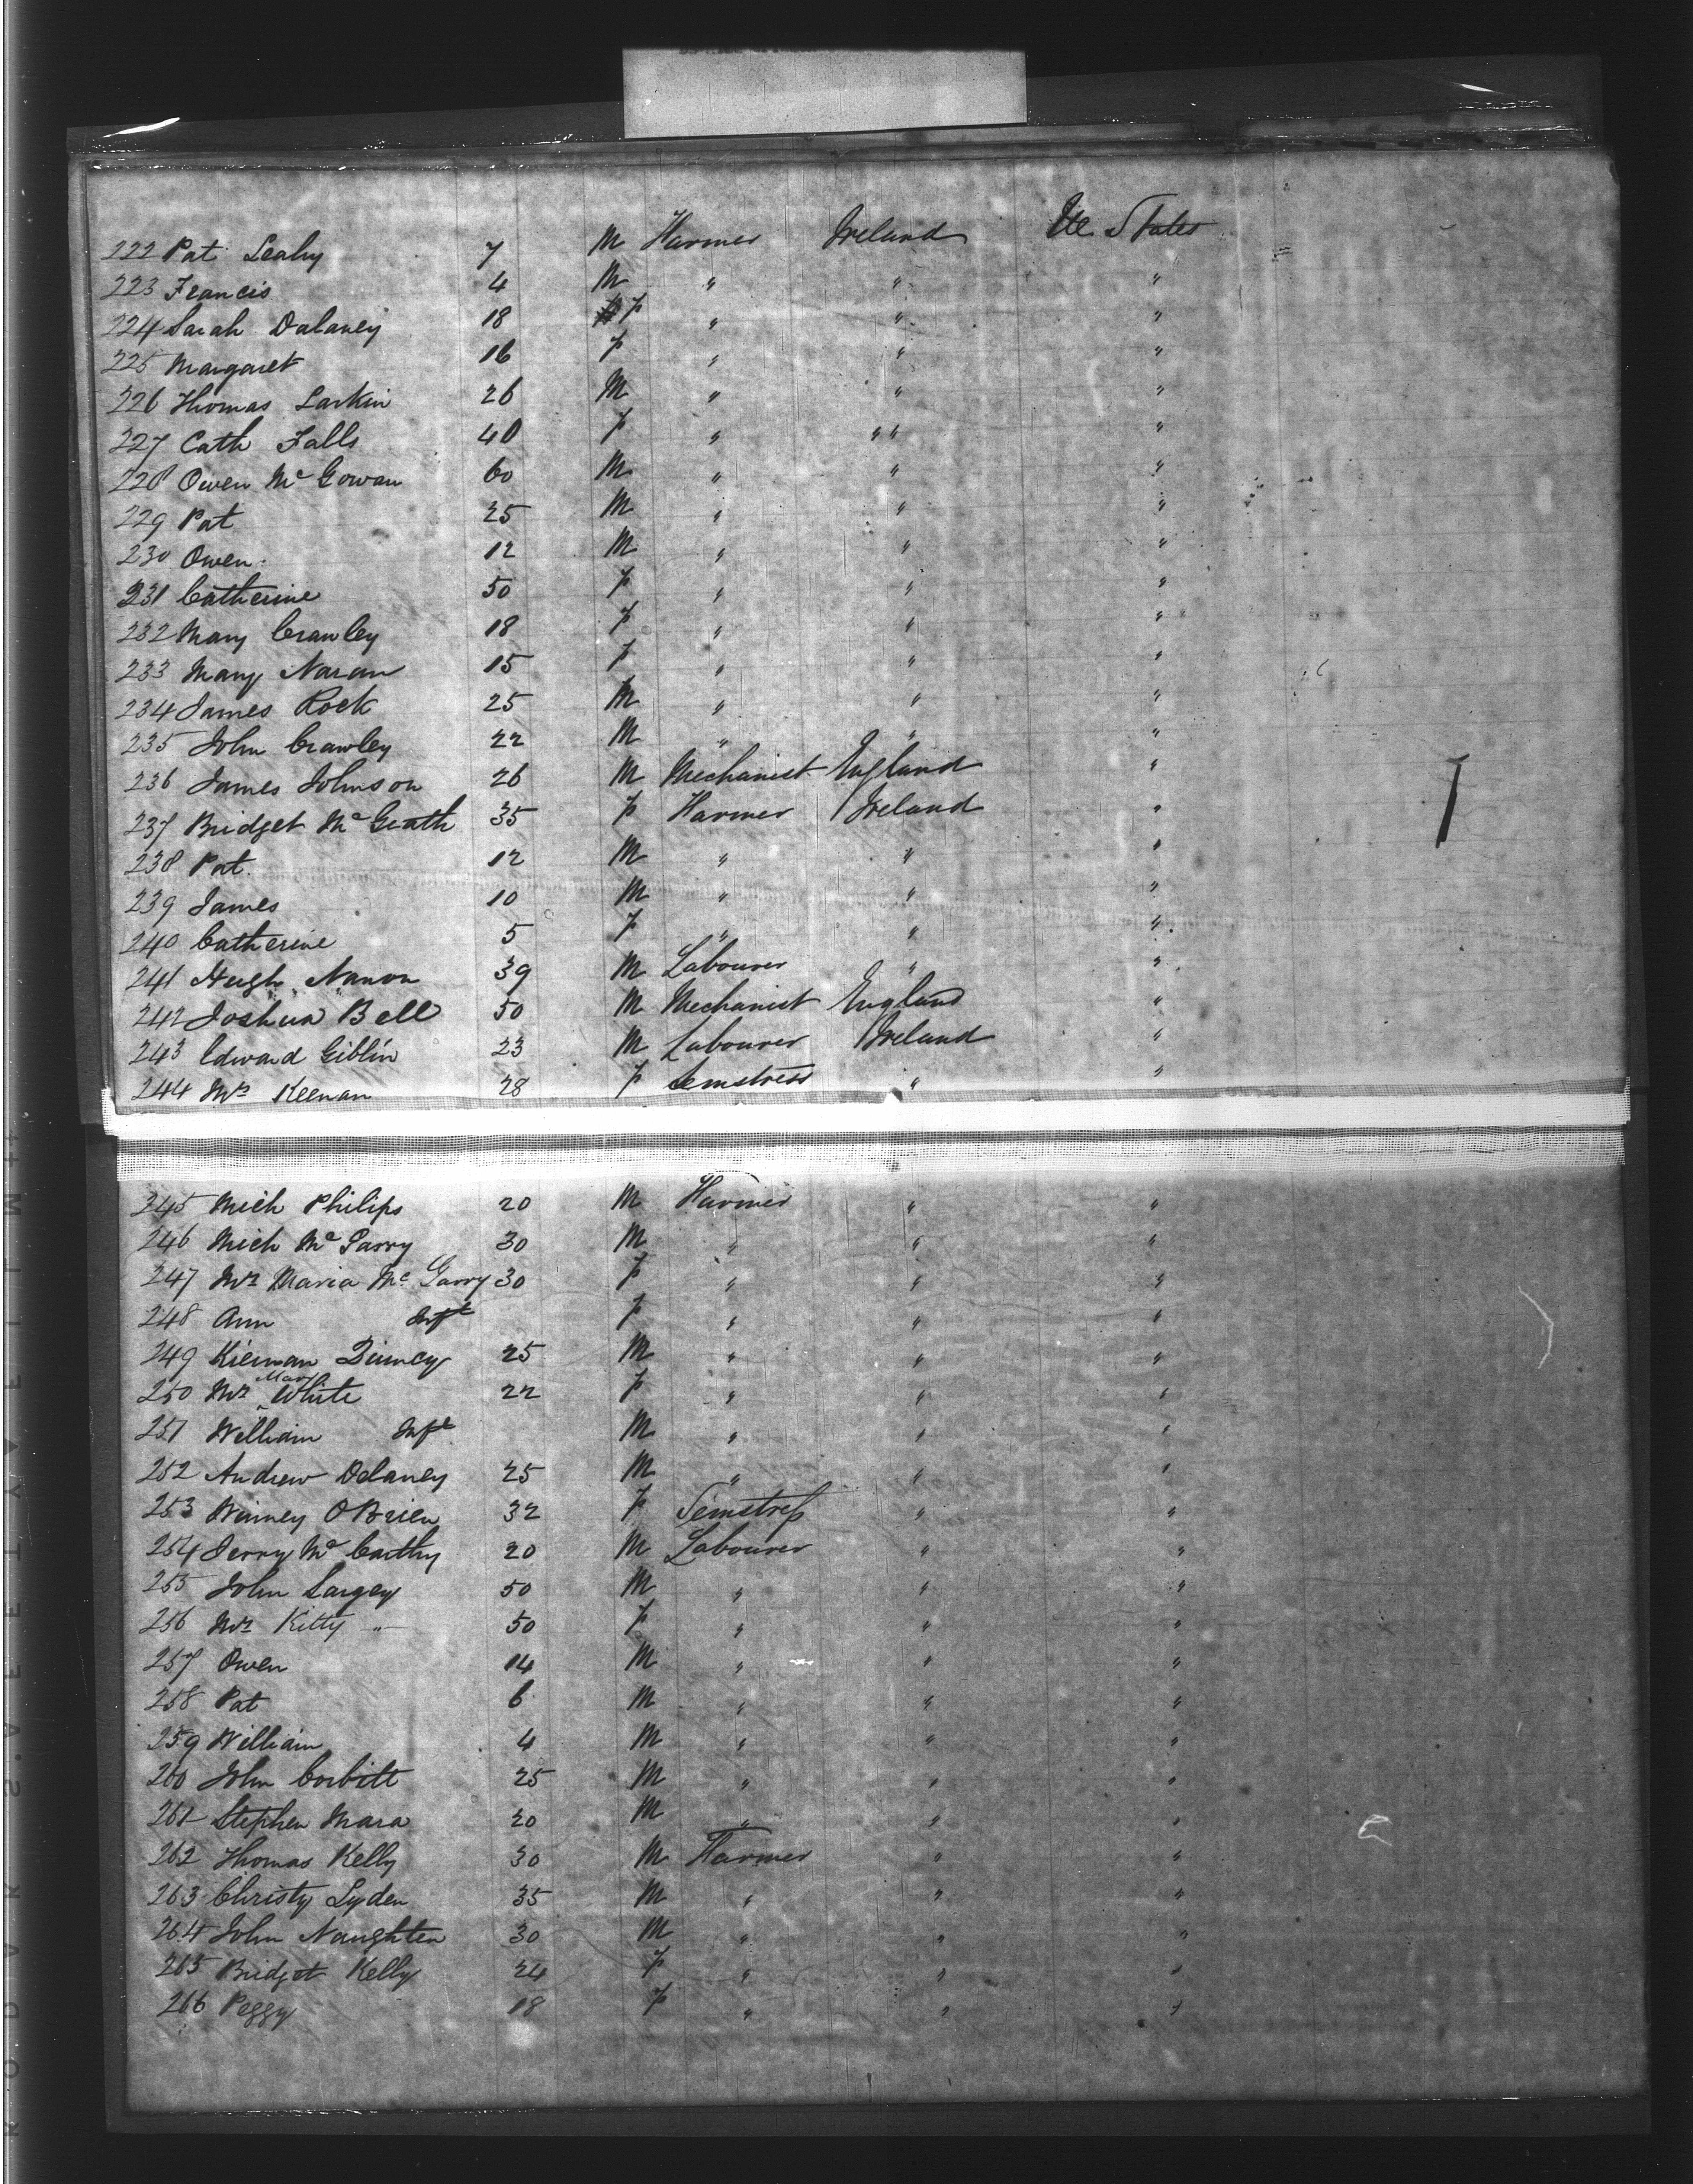 222 Pat Leahy 7 M Farmer Ireland Ute States
223 Francis 4 M " " "
224 Sarah Dalaney 18 F " " "
225 Margaret 16 F " " "
226 Thomas Larkin 26 M " " "
227 Cath Falls 40 F " " " "
228 Owen Mc Gowan 60 M " " "
229 Pat 25 M " " "
230 Owen 12 M " " "
231 Catherine 50 F " " "
232 Mary Crawley 18 F " " "
233 Mary Naran 15 F " " "
234 James Rock 25 M " " "
235 John Crawley 22 M " " "
236 James Johnson 26 M Mechanist England "
237 Bridget Mc Grath 35 F Farmer Ireland "
238 Pat 12 M " " "
239 James 10 M " " "
240 Catherine 5 F " " "
241 Hugh Nanon 39 M Labourer " "
242 Joshua Bell 50 M Mechanist England "
243 Edward Giblin 23 M Labourer Ireland "
244 Mrs Keenan 28 F Semstress " "
245 Mich Philips 20 M Farmer " "
246 Mich Mc Garry 30 M " " "
247 Mrs Maria Mc Garry 30 F " " "
248 Ann Inft F " " "
249 Kiernan 25 M " " "
250 Mrs Mary White 22 F " " "
251 William Inft M " " "
252 Andrew Delaney 25 M " " "
253 Winney O Brien 32 F Semstress " "
254 Jerry Mc Carthy 20 M Labourer " "
255 John Largey 50 M " " "
256 Mrs Kitty " 50 F " " "
257 Owen 14 M " " "
258 Pat 6 M " " "
259 William 4 M " " "
260 John Corbitt 25 M " " "
261 Stephen Mara 20 M " " "
262 Thomas Kelly 30 M Farmer " "
263 Christy Lyden 35 M " " "
264 John Naughten 30 M " " "
265 Bridget Kelly 24 F " " "
266 Peggy 18 F " " "